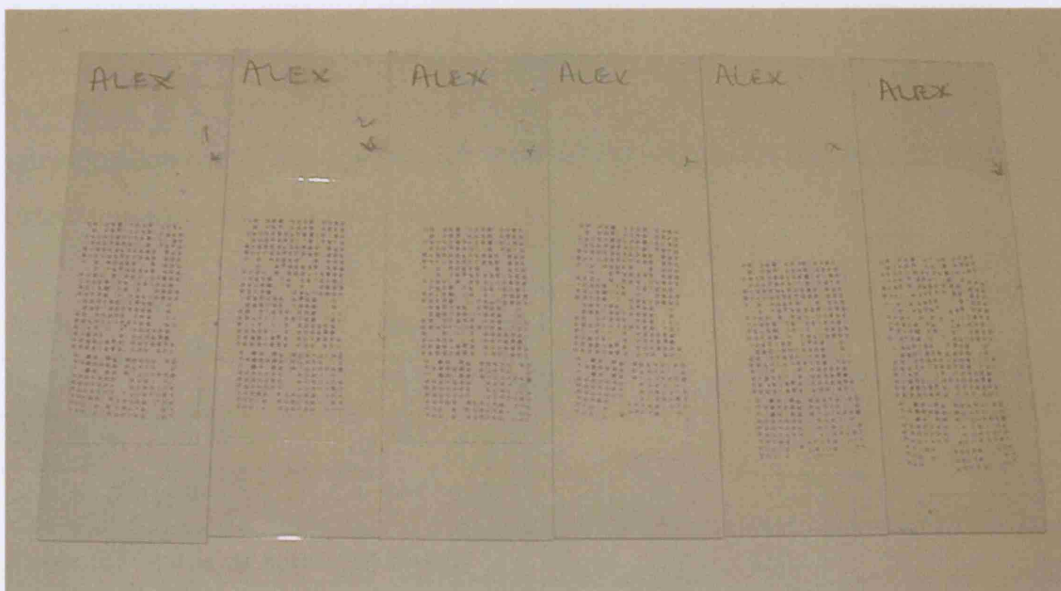 ALEX ALEX ALEX ALEX ALEX ALEX
1 2